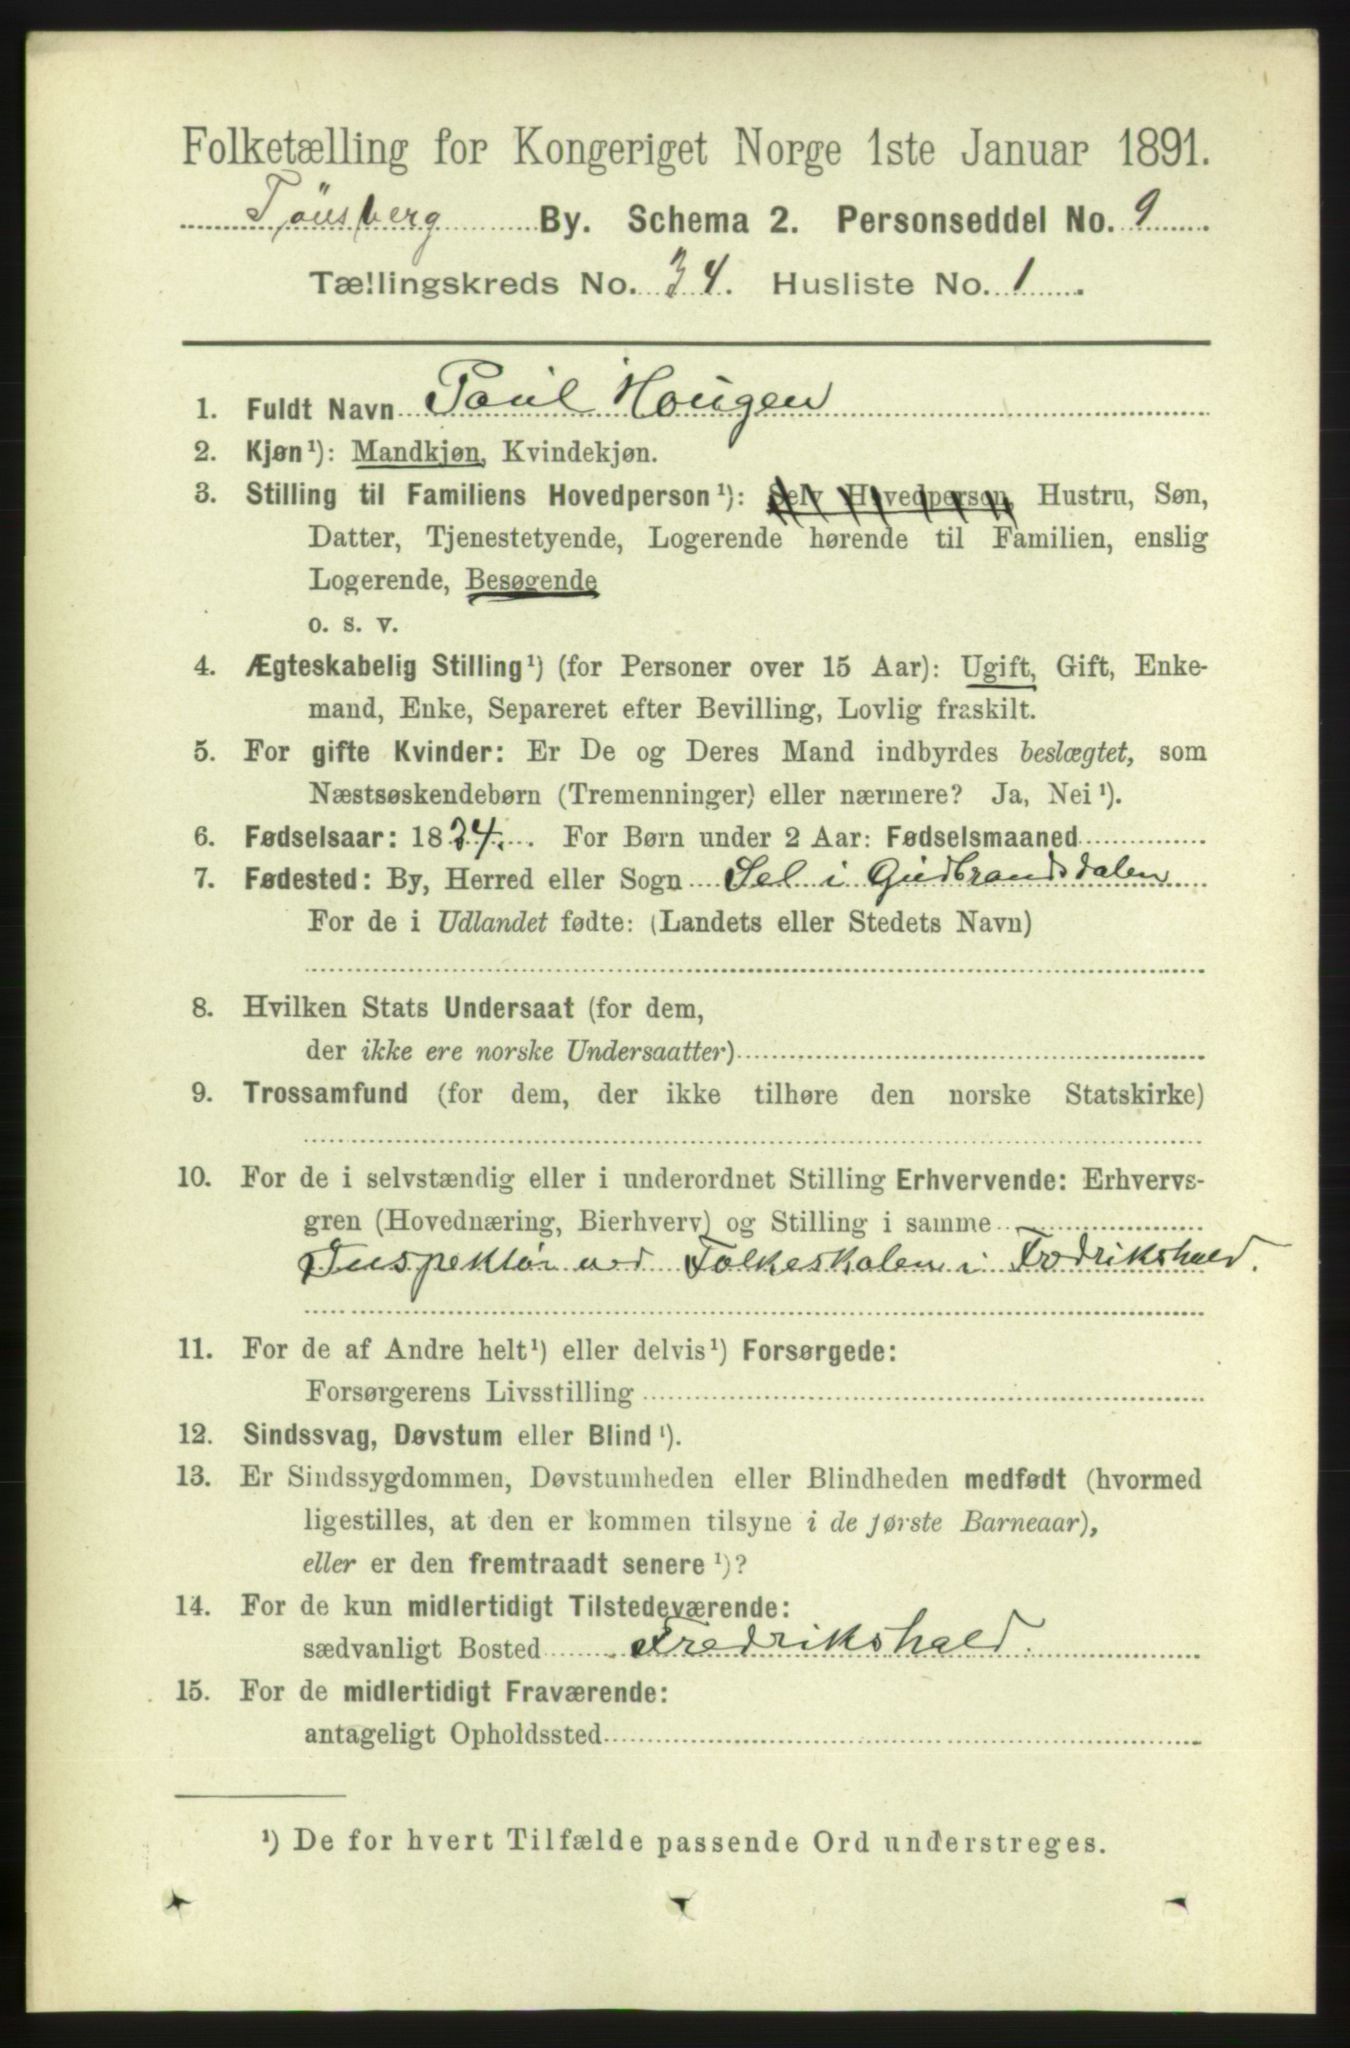 Folketælling for Kongeriget Norge 1ste Januar 1891.
Tönsberg By. Schema 2. Personseddel No. 9
Tællingskreds No. 34. Husliste No. 1
1. Fuldt Navn Paul Hougen
2. Kjøn¹): Mandkjøn, Kvindekjøn.
3. Stilling til Familiens Hovedperson¹): Selv Hovedperson, Hustru, Søn,
Datter, Tjenestetyende, Logerende hørende til Familien, enslig
Logerende, Besøgende
o. s. v.
4. Ægteskabelig Stilling¹) (for Personer over 15 Aar): Ugift, Gift, Enke-
mand, Enke, Separeret efter Bevilling, Lovlig fraskilt.
5. For gifte Kvinder: Er De og Deres Mand indbyrdes beslægtet, som
Næstsøskendebørn (Tremenninger) eller nærmere? Ja, Nei¹).
6. Fødselsaar: 1834. For Børn under 2 Aar: Fødselsmaaned
7. Fødested: By, Herred eller Sogn Sel i Gudbrandsdalen
For de i Udlandet fødte: (Landets eller Stedets Navn)
8. Hvilken Stats Undersaat (for dem,
der ikke ere norske Undersaatter)
9. Trossamfund (for dem, der ikke tilhøre den norske Statskirke)
10. For de i selvstændig eller i underordnet Stilling Erhvervende: Erhvervs-
gren (Hovednæring, Bierhverv) og Stilling i samme
Inspektör ved Folkeskolen i Fredrikshald.
11. For de af Andre helt¹) eller delvis¹) Forsørgede:
Forsørgerens Livsstilling
12. Sindssvag, Døvstum eller Blind¹).
13. Er Sindssygdommen, Døvstumheden eller Blindheden medfødt (hvormed
ligestilles, at den er kommen tilsyne i de første Barneaar),
eller er den fremtraadt senere¹)?
14. For de kun midlertidigt Tilstedeværende:
sædvanligt Bosted Fredrikshald.
15. For de midlertidigt Fraværende:
antageligt Opholdssted
¹) De for hvert Tilfælde passende Ord understreges.